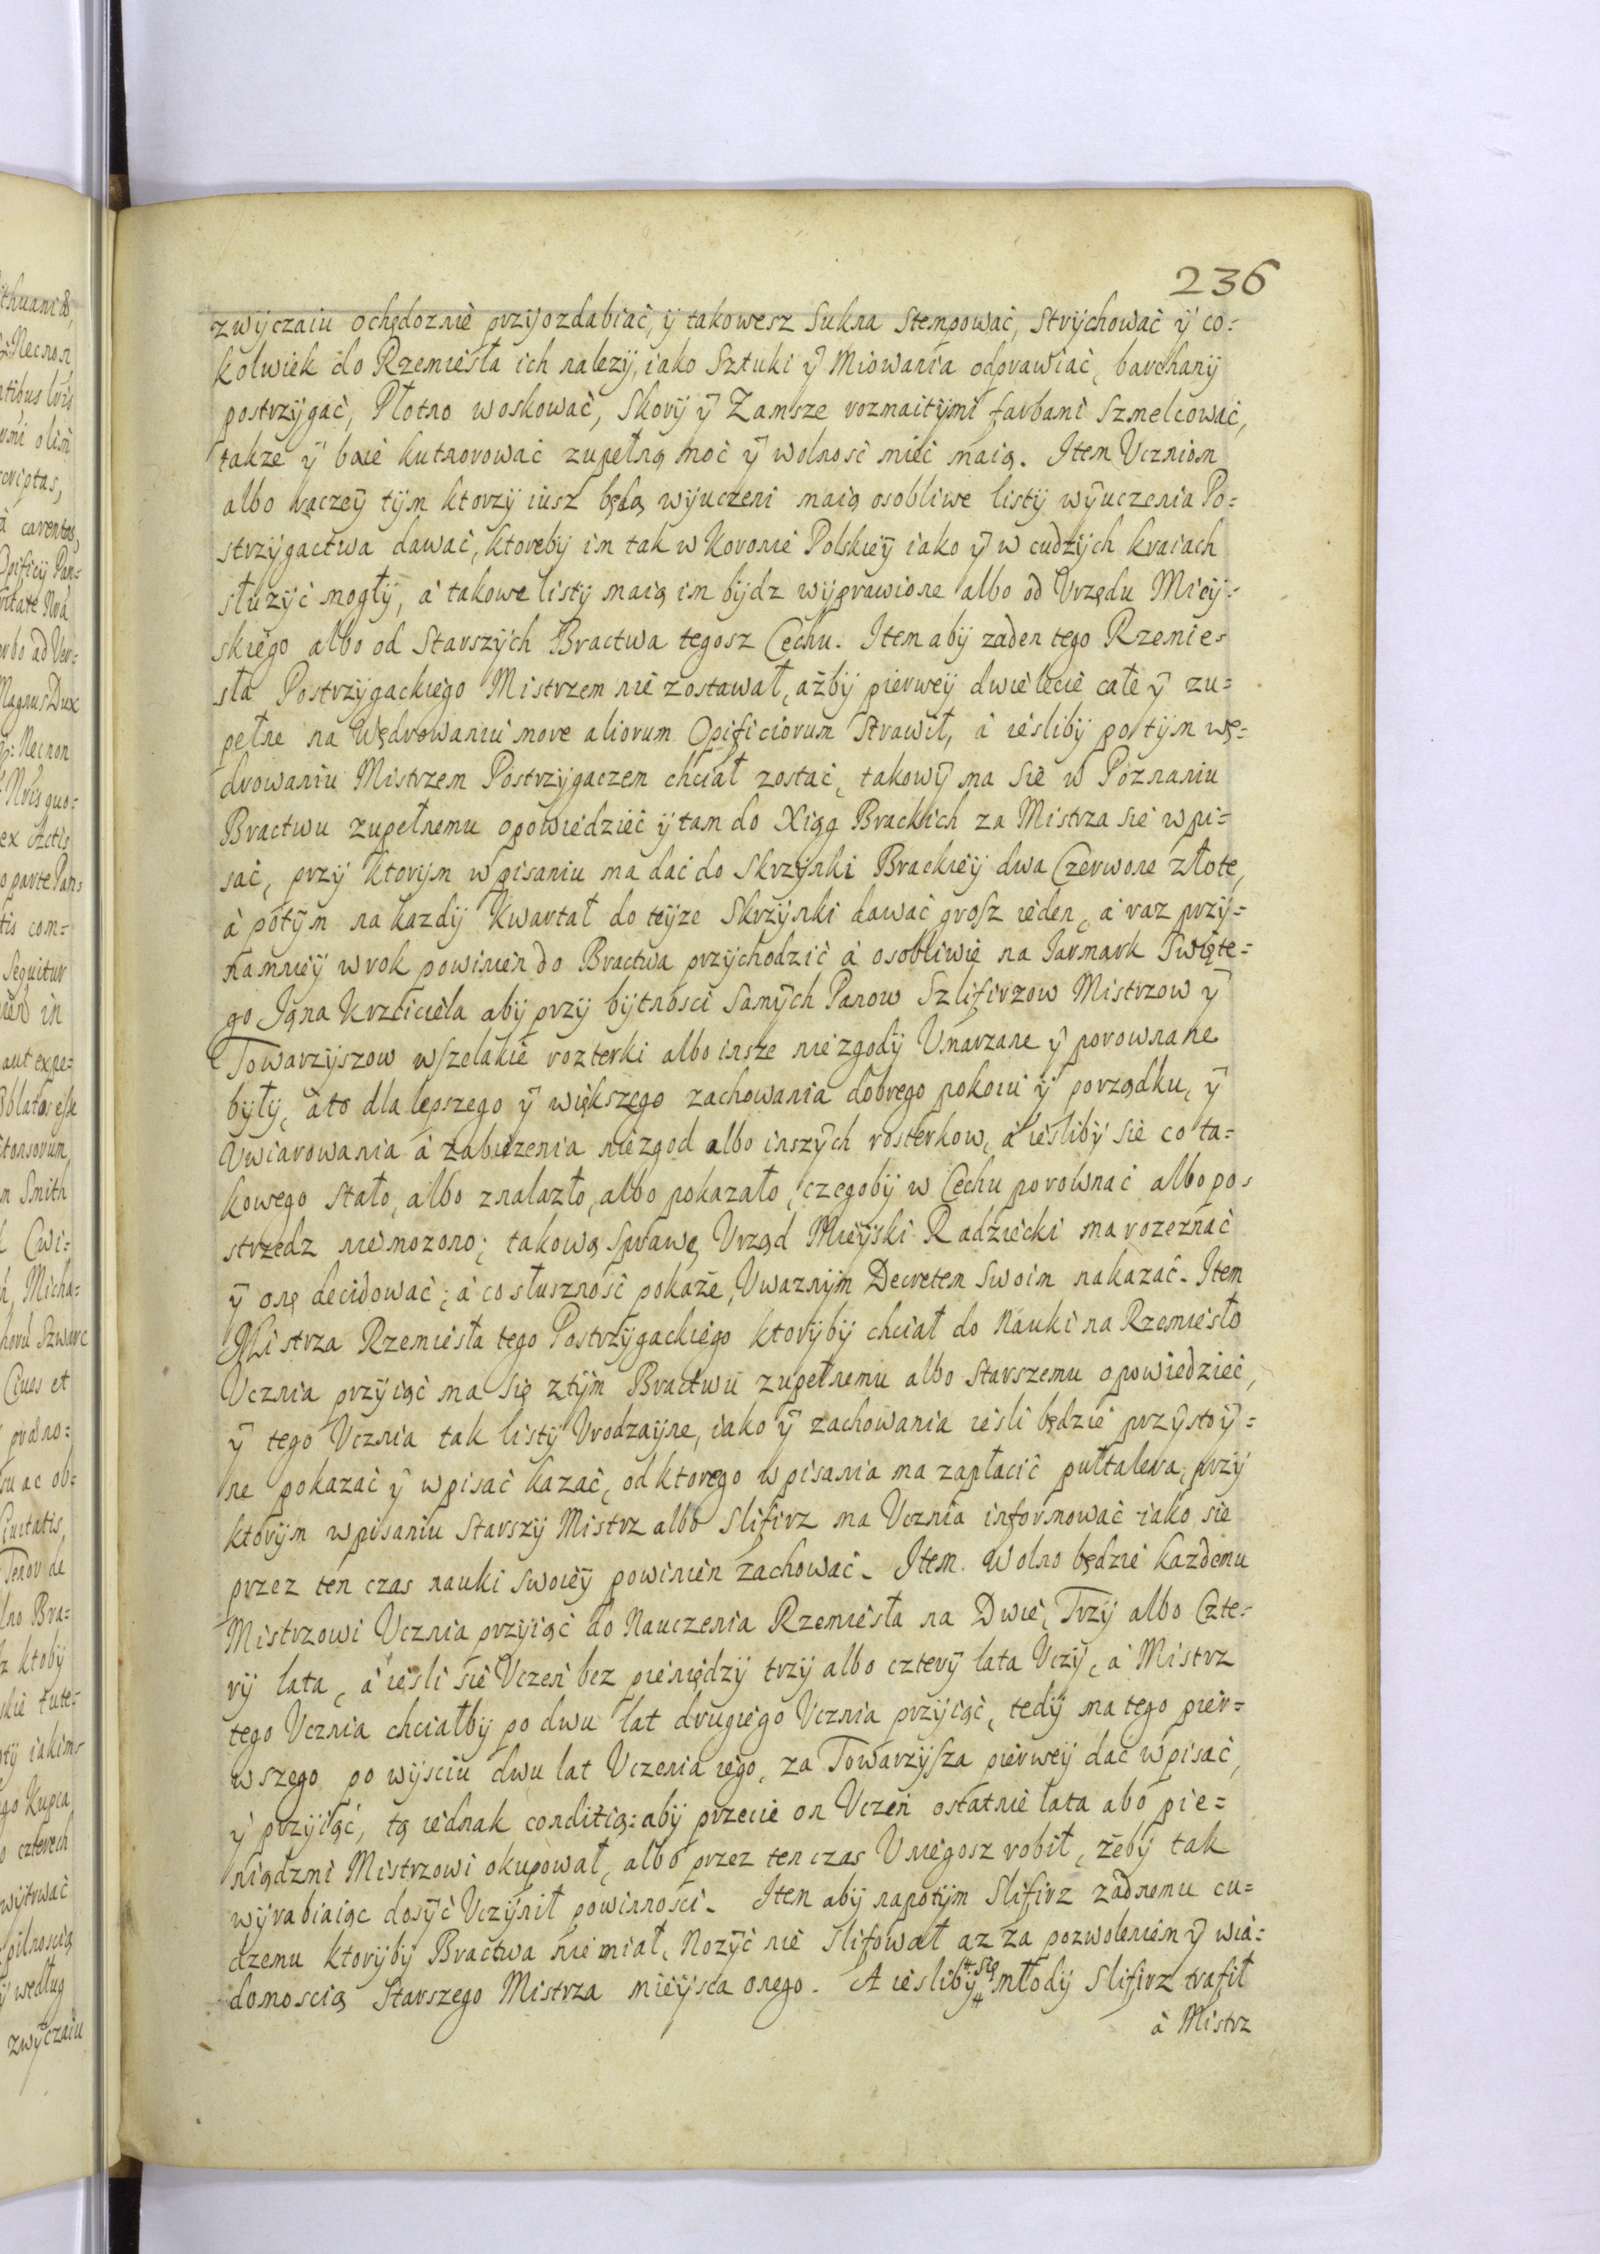 236
zwyczaiu ochędoznie przyozdabiać, y takowesz Sukna Stempować, Strychować y co=
kolwiek do Rzemiesła ich nalezy, iako Sztuki y Miowania odprawiać, barchany
postrzygać, Płotno woskować, Skory y Zamsze rozmaitymi farbami Szmelcować,
takze y boie kutnorować zupełną moc y wolność mieć maią. Item Uczniom
albo raczey tym ktorzy iusz będą wyuczeni maią osobliwe listy wyuczenia Po=
strzygactwa dawać, ktoreby im tak w Koronie Polskiey iako y w cudzych kraiach
słuzyć mogły, á takowe listy maią im bydz wyprawione albo od Vrzędu Miey=
skiego albo od Starszych Bractwa tegosz Cechu. Item aby zaden tego Rzemie=
sła Postrzygackiego Mistrzem nie zostawał, ażby pierwey dwie lecie całe y zu=
pełne na Wędrowaniu more aliorum Opificiorum Strawił, á iesliby po tym wę=
drowaniu Mistrzem Postrzygaczem chciał zostać, takowy ma Sie w Poznaniu
Bractwu zupełnemu opowiedzieć y tam do Xiąg Brackich za Mistrza sie wpi=
sać, przy ktorym wpisaniu ma dać do Skrzynki Brackiey dwa Czerwone złote,
á potym na kazdy Kwartał do teyze Skrzynki dawać grosz ieden, á raz przy=
namniey w rok powinien do Bractwa przychodzić á osobliwie na Iarmark Swięte=
go Iana Krzciciela aby przy bytnosci Samych Panow Szlifirzow Mistrzow y
Towarzyszow wszelakie rozterki albo insze niezgody Vmarzane y porownane
były, á to dla lepszego y większego zachowania dobrego pokoiu y porządku, y
Vwiarowania á zabiezenia niezgod albo inszych rosterkow, á iesliby sie co ta=
kowego Stało, albo znalazło, albo pokazało, czegoby w Cechu porownać albo po=
strzedz niemozono; takową Sprawę Vrząd Mieyski Radziecki ma rozeznać
y onę decidować; á co słuszność pokaże, Vwaznym Decretem Swoim nakazać. Item
Mistrza Rzemiesła tego Postrzygackiego ktoryby chciał do Nauki na Rzemiesło
Vcznia przyiąć ma Się z tym Bractwu zupełnemu albo Starszemu opowiedzieć,
y tego Vcznia tak listy Vrodzayne, iako y zachowania iesli będzie przystoy=
ne pokazać y wpisać kazać, od ktorego wpisania ma zapłacić pułtalera, przy
ktorym wpisaniu Starszy Mistrz albo Slifirz ma Vcznia informować iako sie
przez ten czas nauki Swoiey powinien zachować. Item. Wolno będzie kazdemu
Mistrzowi Vcznia przyiąć do Nauczenia Rzemiesła na Dwie, Trzy albo Czte=
ry lata, á iesli sie Vczeń bez pieniędzy trzy albo cztery lata Vczy, á Mistrz
tego Vcznia chciałby po dwu lat drugiego Vcznia przyiąć, tedy ma tego pier=
wszego po wysciu dwu lat Vczenia iego, za Towarzysza pierwey dać wpisać,
y przyiąć, tą iednak conditią: aby przecie on Vczeń ostatnie lata abo pie=
niądzmi Mistrzowi okupował, albo przez ten czas Vniegosz robił, żeby tak
wyrabiaiąc dosyć Vczynił powinnosci. Item aby napotym Slifirz zadnemu cu=
dzemu ktoryby Bractwa niemiał, Nozyc nie Slifował az za pozwoleniem y wia=
domoscią Starszego Mistrza mieysca onego. A iesliby się młody Slifirz trafił
á Mistrz